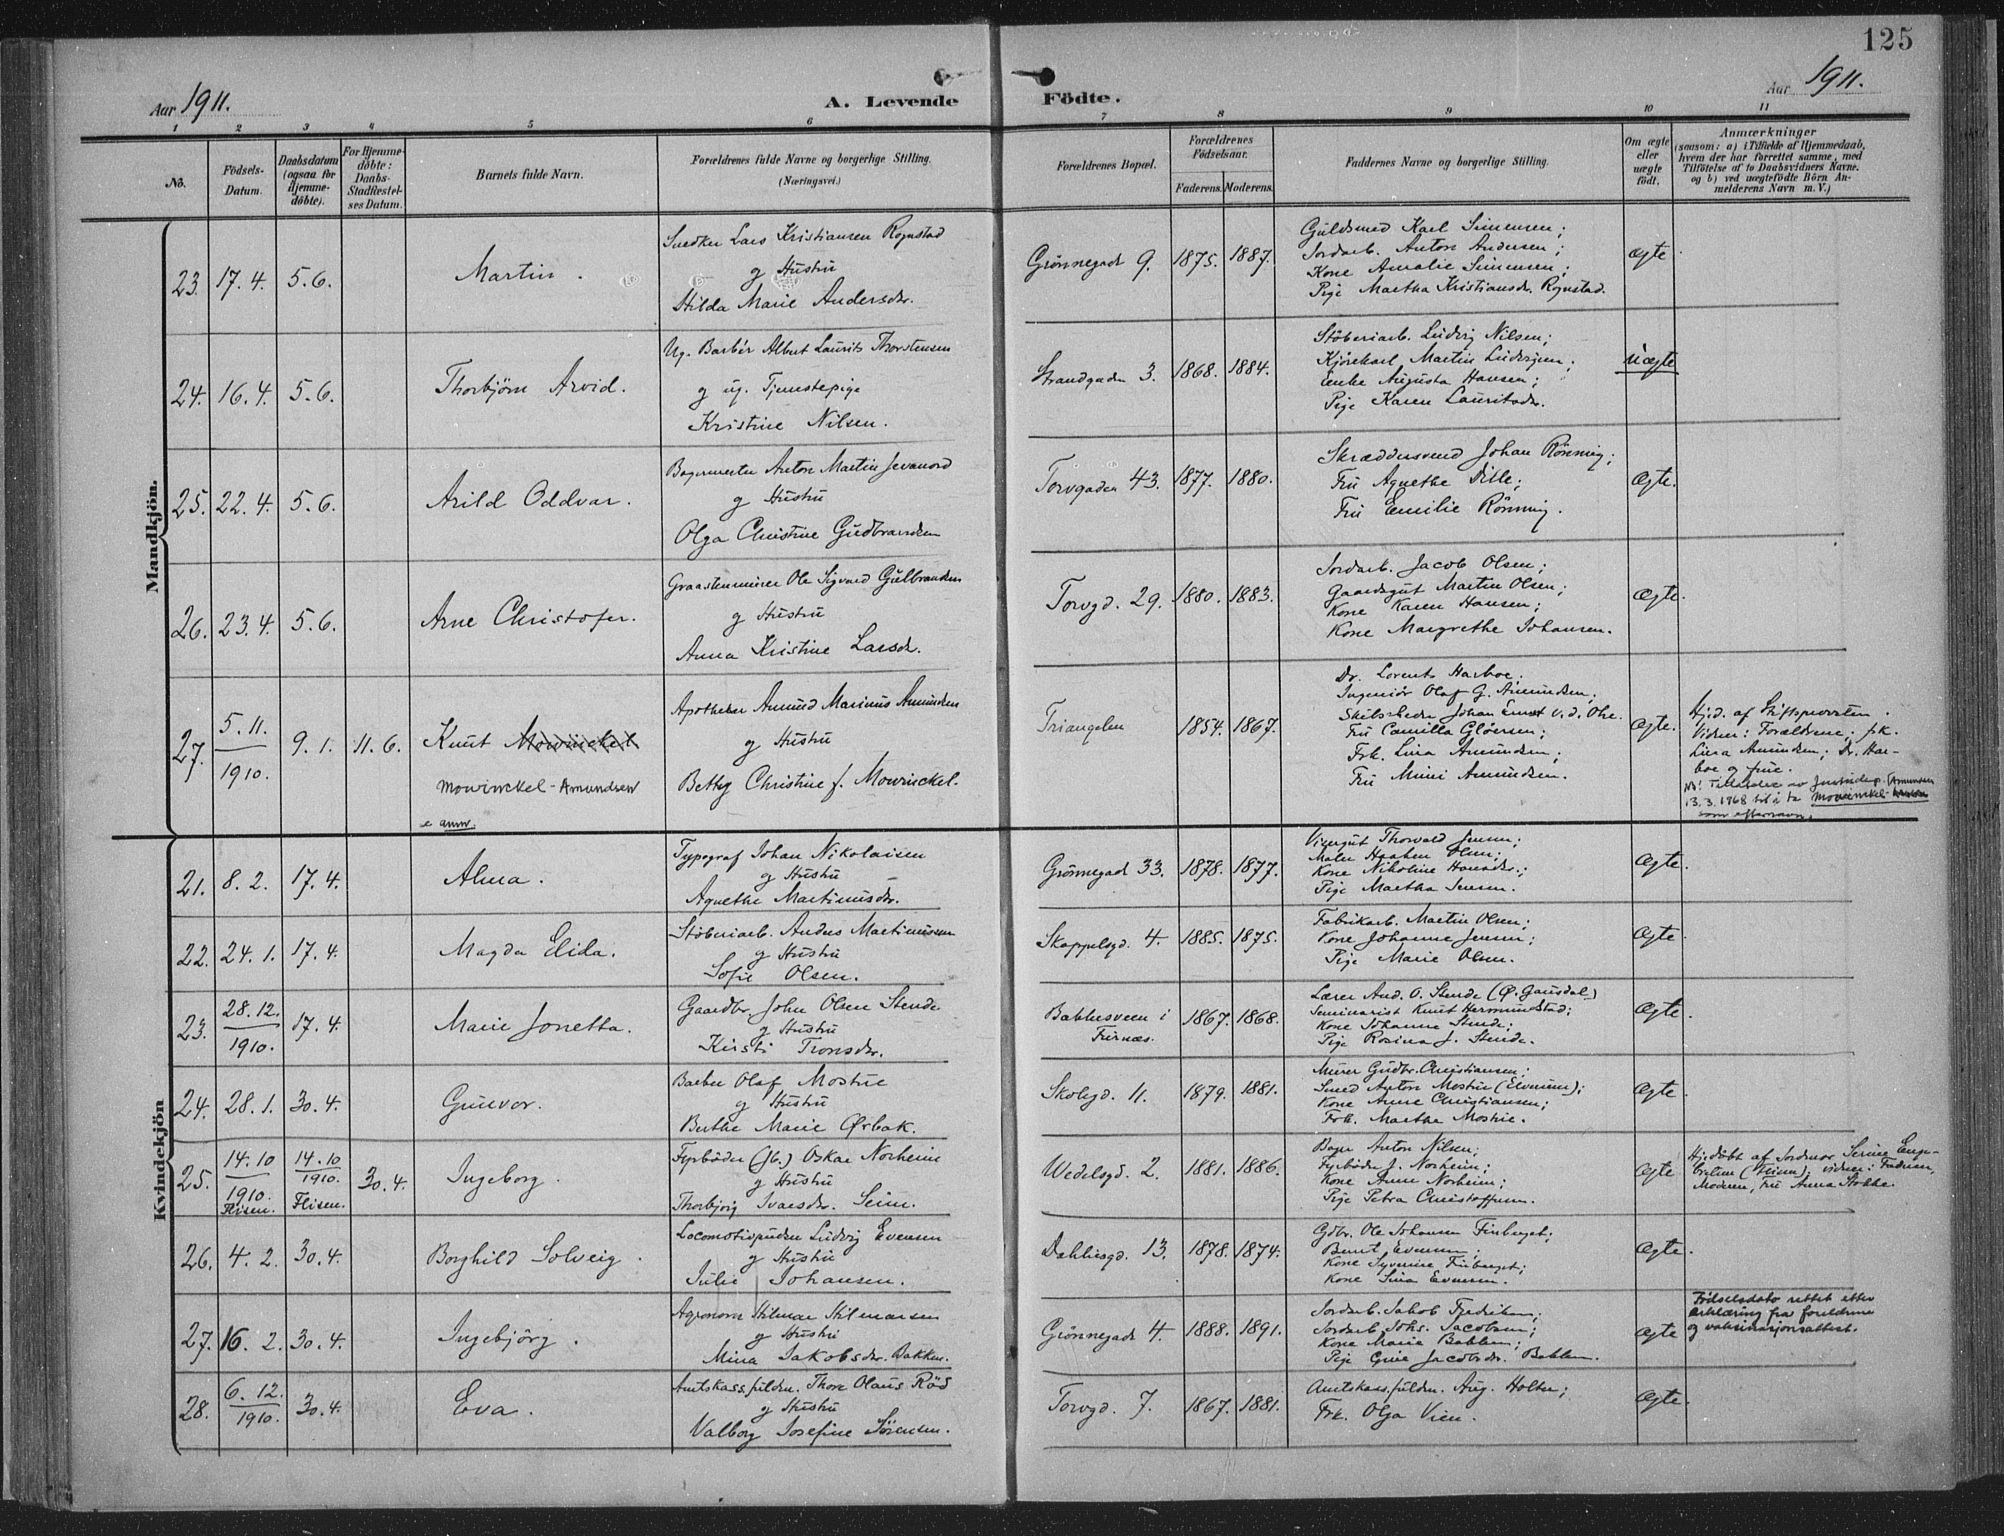 125
Aar 1911.
A. Levende Födte.
Aar 1911.
1 2 3 4 5 6 7 8 9 10 11
No.
Födsels-Datum.
Daabsdatum (ogsaa for Hjemme-döbte).
For Hjemme-döbte: Daabs-Stadfæstel-ses Datum.
Barnets fulde Navn.
Forældrenes fulde Navne og borgerlige Stilling.
(Næringsvei.)
Forældrenes Bopæl.
Forældrenes Födselsaar.
Faderens. Moderens.
Faddernes Navne og borgerlige Stilling.
Om ægte eller uægte födt.
Anmærkninger
(saasom: a) i Tilfælde af Hjemmedaab, hvem der har forrettet samme, med Tilföielse af to Daabsvidners Navne. og b) ved uægtefödte Börn Anmelderens Navn m. V.)
Mandkjön.
23. 17.4. 5.6. Martin.
Snedker Lars Kristiansen Rognstad
og Hustru
Hilda Marie Andersdr.
Grønnegad 9. 1875. 1887.
Guldsmed Karl Simensen;
Jordarb. Anton Andersen;
Kone Amalie Simensen;
Pige Martha Kristiansdr. Rognstad.
ægte
24. 16.4. 5.6. Thorbjørn Arvid.
Ug. Barbér Albert Laurits Thorstensen
og ug. Tjenstepige
Kristine Nilsen.
Strandgaden 3. 1868. 1884.
Støberiarb. Ludvig Nilsen;
Kjørekarl Martin Ludvigsen;
Enke Augusta Hansen;
Pige Karen Lauritsdr.
uægte
25. 22.4. 5.6. Arild Oddvar.
Bagermester Anton Martin Jevanord
og Hustru
Olga Christine Gudbrandsen
Torvgaden 43. 1877. 1880.
Skræddersvend Johan Rønning;
Fru Agnethe Dille;
Fru Emilie Rønning.
ægte.
26. 23.4. 5.6. Arne Christofer.
Graastenminer Ole Sigvard Gulbrandsen
og Hustru
Anna Kristine Larsdr.
Torvgd. 29. 1880. 1883.
Jordarb. Jacob Olsen;
Gaardsgut Martin Olsen;
Kone Karen Hansen;
Kone Margrethe Johansen.
ægte.
27. 5.11. 1910. 9.1. 11.6. Knut Mowinckel
Mowinckel-Amundsen
Apotheker Amund Marinus Amundsen
og Hustru
Betty Christine f. Mowinckel.
Triangelen 1854. 1867.
Dr. Lorents Harboe;
Ingeniør Olaf G. Amundsen;
Skibsreder Johan Ernst v.d. Ohe.
Fru Camilla Gløersen;
Frk. Lina Amundsen;
Fru Mimi Amundsen.
ægte.
Hjd. af Stiftsprovsten.
Vidner: Forældrene; frk.
Lina Amundsen; Dr. Har-
boe og frue.
13.3.1968 til å ta Mowinckel-Amundsen
som etternavn.
Kvindekjön
21. 8.2. 17.4. Alma.
Typograf Johan Nikolaisen
og Hustru
Agnethe Martinusdr.
Grønnegad 33. 1878. 1877.
Visergut Thorvald Jensen;
Maler Haaken Olsen;
Kone Nikoline Hansdr.;
Pige Martha Jensen.
ægte.
22. 24.1. 17.4. Magda Elida.
Støberiarb. Anders Martinussen
og Hustru
Sofie Olsen.
Skappelsgd. 4. 1885. 1875.
Fabrikarb. Martin Olsen;
Kone Johanne Jensen;
Pige Marie Olsen.
ægte.
23. 28.12. 1910. 17.4. Marie Jonetta.
Gaardbr. John Olsen Stende
og Hustru
Kirsti Tronsdr.
Bakkesveen i
Furnæs. 1867. 1868.
Lærer And. O. Stende (Ø. Gausdal)
Seminarist Knut Hermundstad;
Kone Johanne Stende;
Pige Rosina J. Stende.
ægte.
24. 28.1. 30.4. Gunvor.
Barber Olaf Mostue
og Hustru
Berthe Marie Ørbak.
Skolegd. 11. 1879. 1881.
Murer Gudbr. Christiansen;
Smed Anton Mostue (Elverum);
Kone Anne Christiansen;
Frk. Marthe Mostue.
ægte.
25. 14.10 1910. Flisen. 14.10 1910. Flisen. 30.4. Ingeborg.
Fyrbøder (Jb.) Oskar Norheim
og Hustru
Thorbjørg Ivarsdr. Seim.
Wedelsgd. 2. 1881. 1886.
Bager Anton Nilsen;
Fyrbøder J. Norheim;
Kone Anne Norheim;
Pige Petra Christoffersen.
ægte
Hjedøbt af Jordmor Serine Enge-
bretsen (Flisen); vidner: Faderen,
Moderen, Fru Anna Stokke.
26. 4.2. 30.4. Borghild Solveig.
Locomotivpudser Ludvig Evensen
og Hustru
Julie Johansen.
Dahliesgd. 13. 1878. 1874.
Gdbr. Ole Johansen Finberget;
Bernt Evensen;
Kone Syverine Finberget;
Kone Lina Evensen.
ægte.
27. 16.2. 30.4. Ingebjørg.
Agronom Hilmar Hilmarsen
og Hustru
Mina Jakobsdr. Bakken.
Grønnegad 4. 1888. 1891.
Jordarb. Johs. Jacobsen;
Kone Marie Bakken;
ægte
Fødselsdato rettet etter
erklæring fra foreldrene
og vaksinasjonsattest.
28. 6.12. 1910. 30.4. Eva.
Amtskassefuldm. Thore Olaus Rød
og Hustru
Valborg Josefine Sørensen.
Torvgd. 7. 1867. 1881.
Amtskassefuldm. Aug. Holter;
Frk. Olga Vien.
ægte.